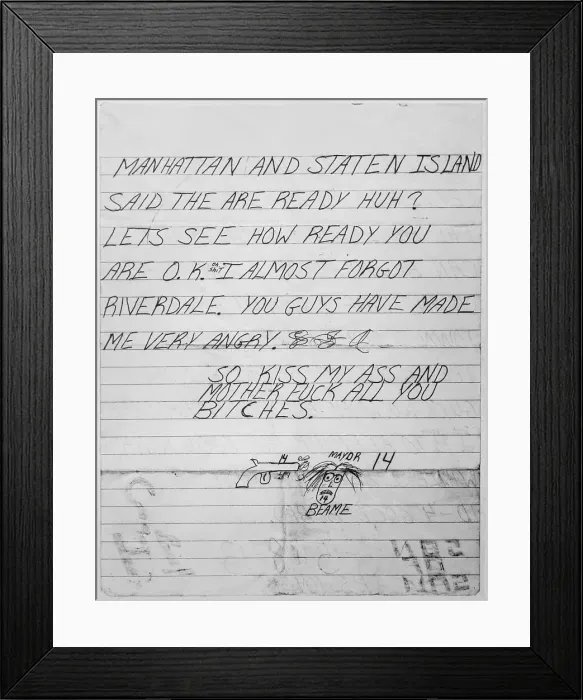 MANHATTAN AND STATEN ISLAND
SAID THE ARE READY HUH?
LETS SEE HOW READY YOU
ARE O.K. OH SHIT I ALMOST FORGOT
RIVERDALE. YOU GUYS HAVE MADE
ME VERY ANGRY.
SO KISS MY ASS AND
MOTHER FUCK ALL YOU
BITCHES.
MAYOR 14
14
14
BEAME